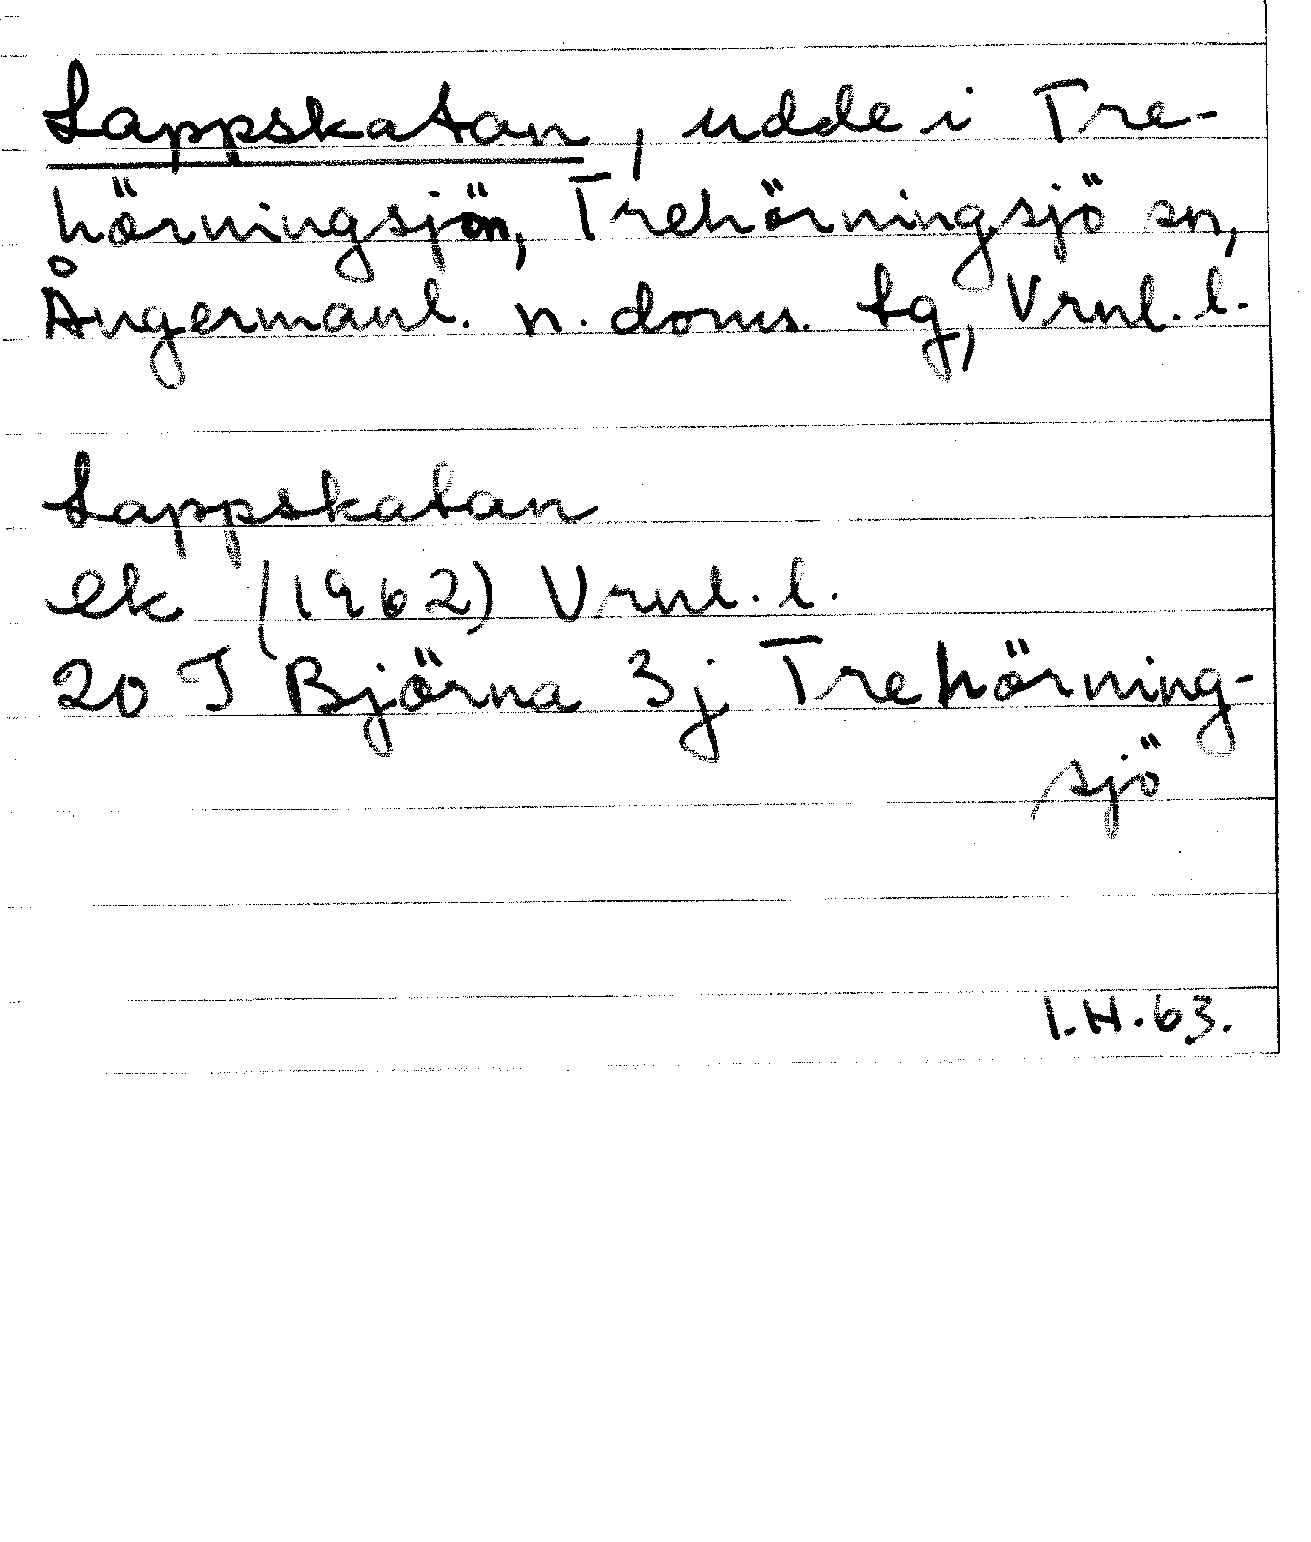 Lappskatan, udde i Tre-
hörningsjön, Trehörningsjö sn,
Ångermanl. n. doms. tg, Vrnl. l.
Lappskatan
ek (1962) Vrnl. l.
20 J Björna 3j Trehörning-
sjö
I.H.63.